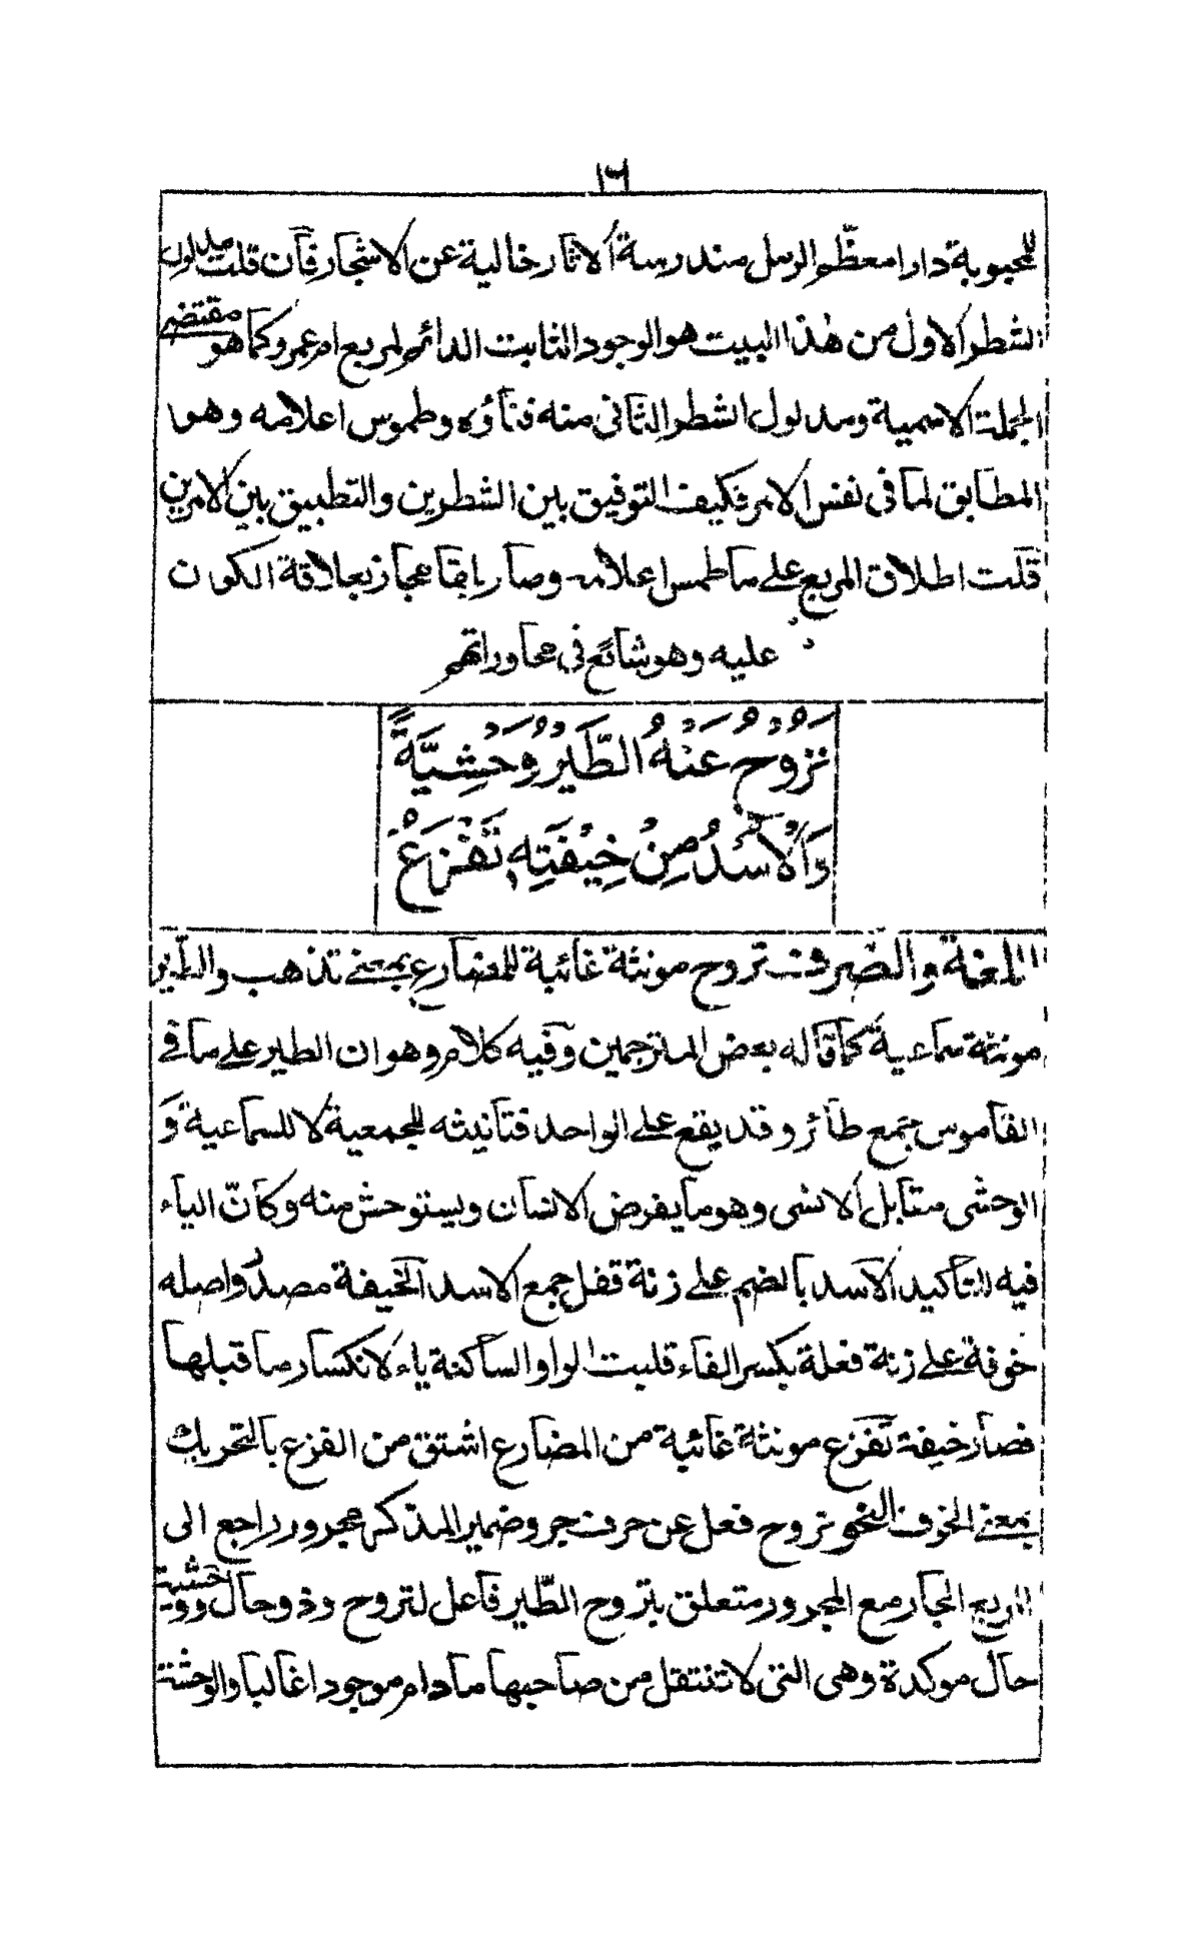 ١٦
للمحبوبة دارا معظم الرمل مندرسة الاثار خالية عن الاشجار فان قلت مدلول
الشطر الاول من هذا البيت هو الوجود الثابت الدائم لمربع ام عمرو كما هو مقتضى
الجملة الاسمية ومدلول الشطر الثانى منه فناؤه وطموس اعلامه وهو
المطابق لما فى نفس الامر فكيف التوفيق بين الشطرين والتطبيق بين الامرين
قلت اطلاق المربع على ما طمس اعلامه وصار بلقعا مجاز بعلاقة الكون
عليه وهو شائع فى محاوراتهم
تَرُوْحُ عَنْهُ الطَّيْرُ وَحْشِيَّةً
وَالْاُسْدُ مِنْ خِيْفَتِهٖ تَفْزَعُ
اللغة والصرف تروح مونثة غائبة للمضارع بمعنى تذهب والطير
مونثة سماعية كما قاله بعض المترجمين وفيه كلام وهو ان الطير على ما فى
القاموس جمع طائر وقد يقع على الواحد فتانيثه للجمعية لا للسماعية وَ
الوحشى مقابل الانسى وهو ما يفرض الانسان ويستوحش منه وكانّ الياء
فيه للتاكيد الاسد بالضم على زنة قفل جمع الاسد الخيفة مصدر واصله
خوفة على زنة فعلة بكسر الفاء قلبت الواو الساكنة ياء لانكسار ما قبلها
فصار خيفة تفزع مونثة غائبة من المضارع اشتق من الفزع بالتحريك
بمعنى الخوف النحو تروح فعل عن حرف جر وضمير المذكر مجرور راجع الى
المربع الجار مع المجرور متعلق بتروح الطّير فاعل لتروح وذو حال ووحشية
حال موكدة وهى التى لا تنتقل من صاحبها ما دام موجودا غالبا والوحشة